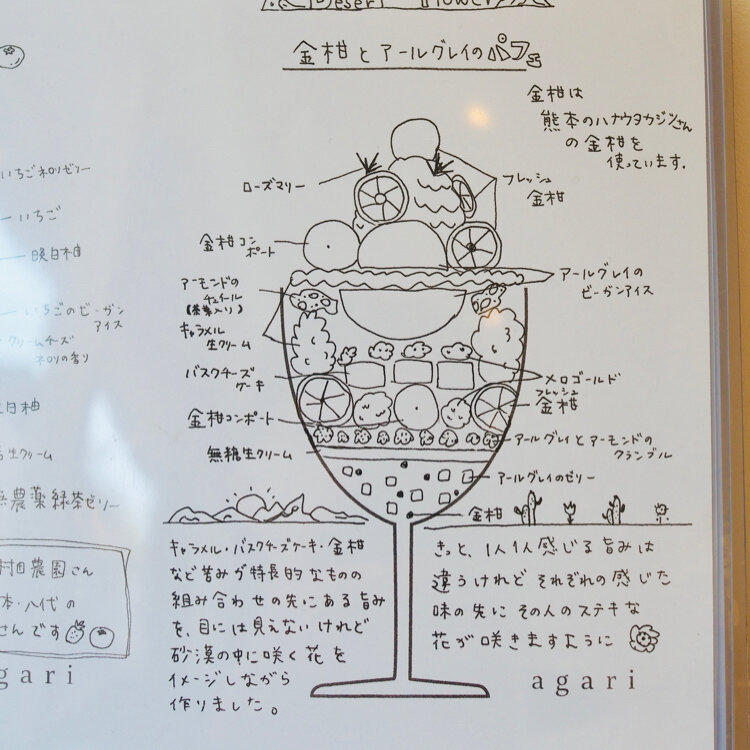 Desert Flower
金柑とアールグレイのパフェ
金柑は
熊本のハナウタカジツさん
の金柑を
使っています。
ローズマリー
フレッシュ
金柑
金柑コン
ポート
アーモンドの
チュイール
(茶葉入り)
アールグレイの
ビーガンアイス
キャラメル
生クリーム
バスクチーズ
ケーキ
メロゴールド
フレッシュ
金柑
金柑コンポート
アールグレイとアーモンドの
クランブル
無糖生クリーム
アールグレイのゼリー
金柑
キャラメル・バスクチーズケーキ・金柑
など苦みが特長的なものの
組み合わせの先にある旨み
を、目には見えないけれど
砂漠の中に咲く花を
イメージしながら
作りました。
きっと、1人1人感じる旨みは
違うけれど それぞれの感じた
味の先に その人のステキな
花が咲きますように
agari
いちごネロリゼリー
いちご
晩白柚
いちごのビーガン
アイス
クリームチーズ
ネロリの香り
白柚
生クリーム
農薬緑茶ゼリー
村田農園さん
本・八代の
さんです
gari